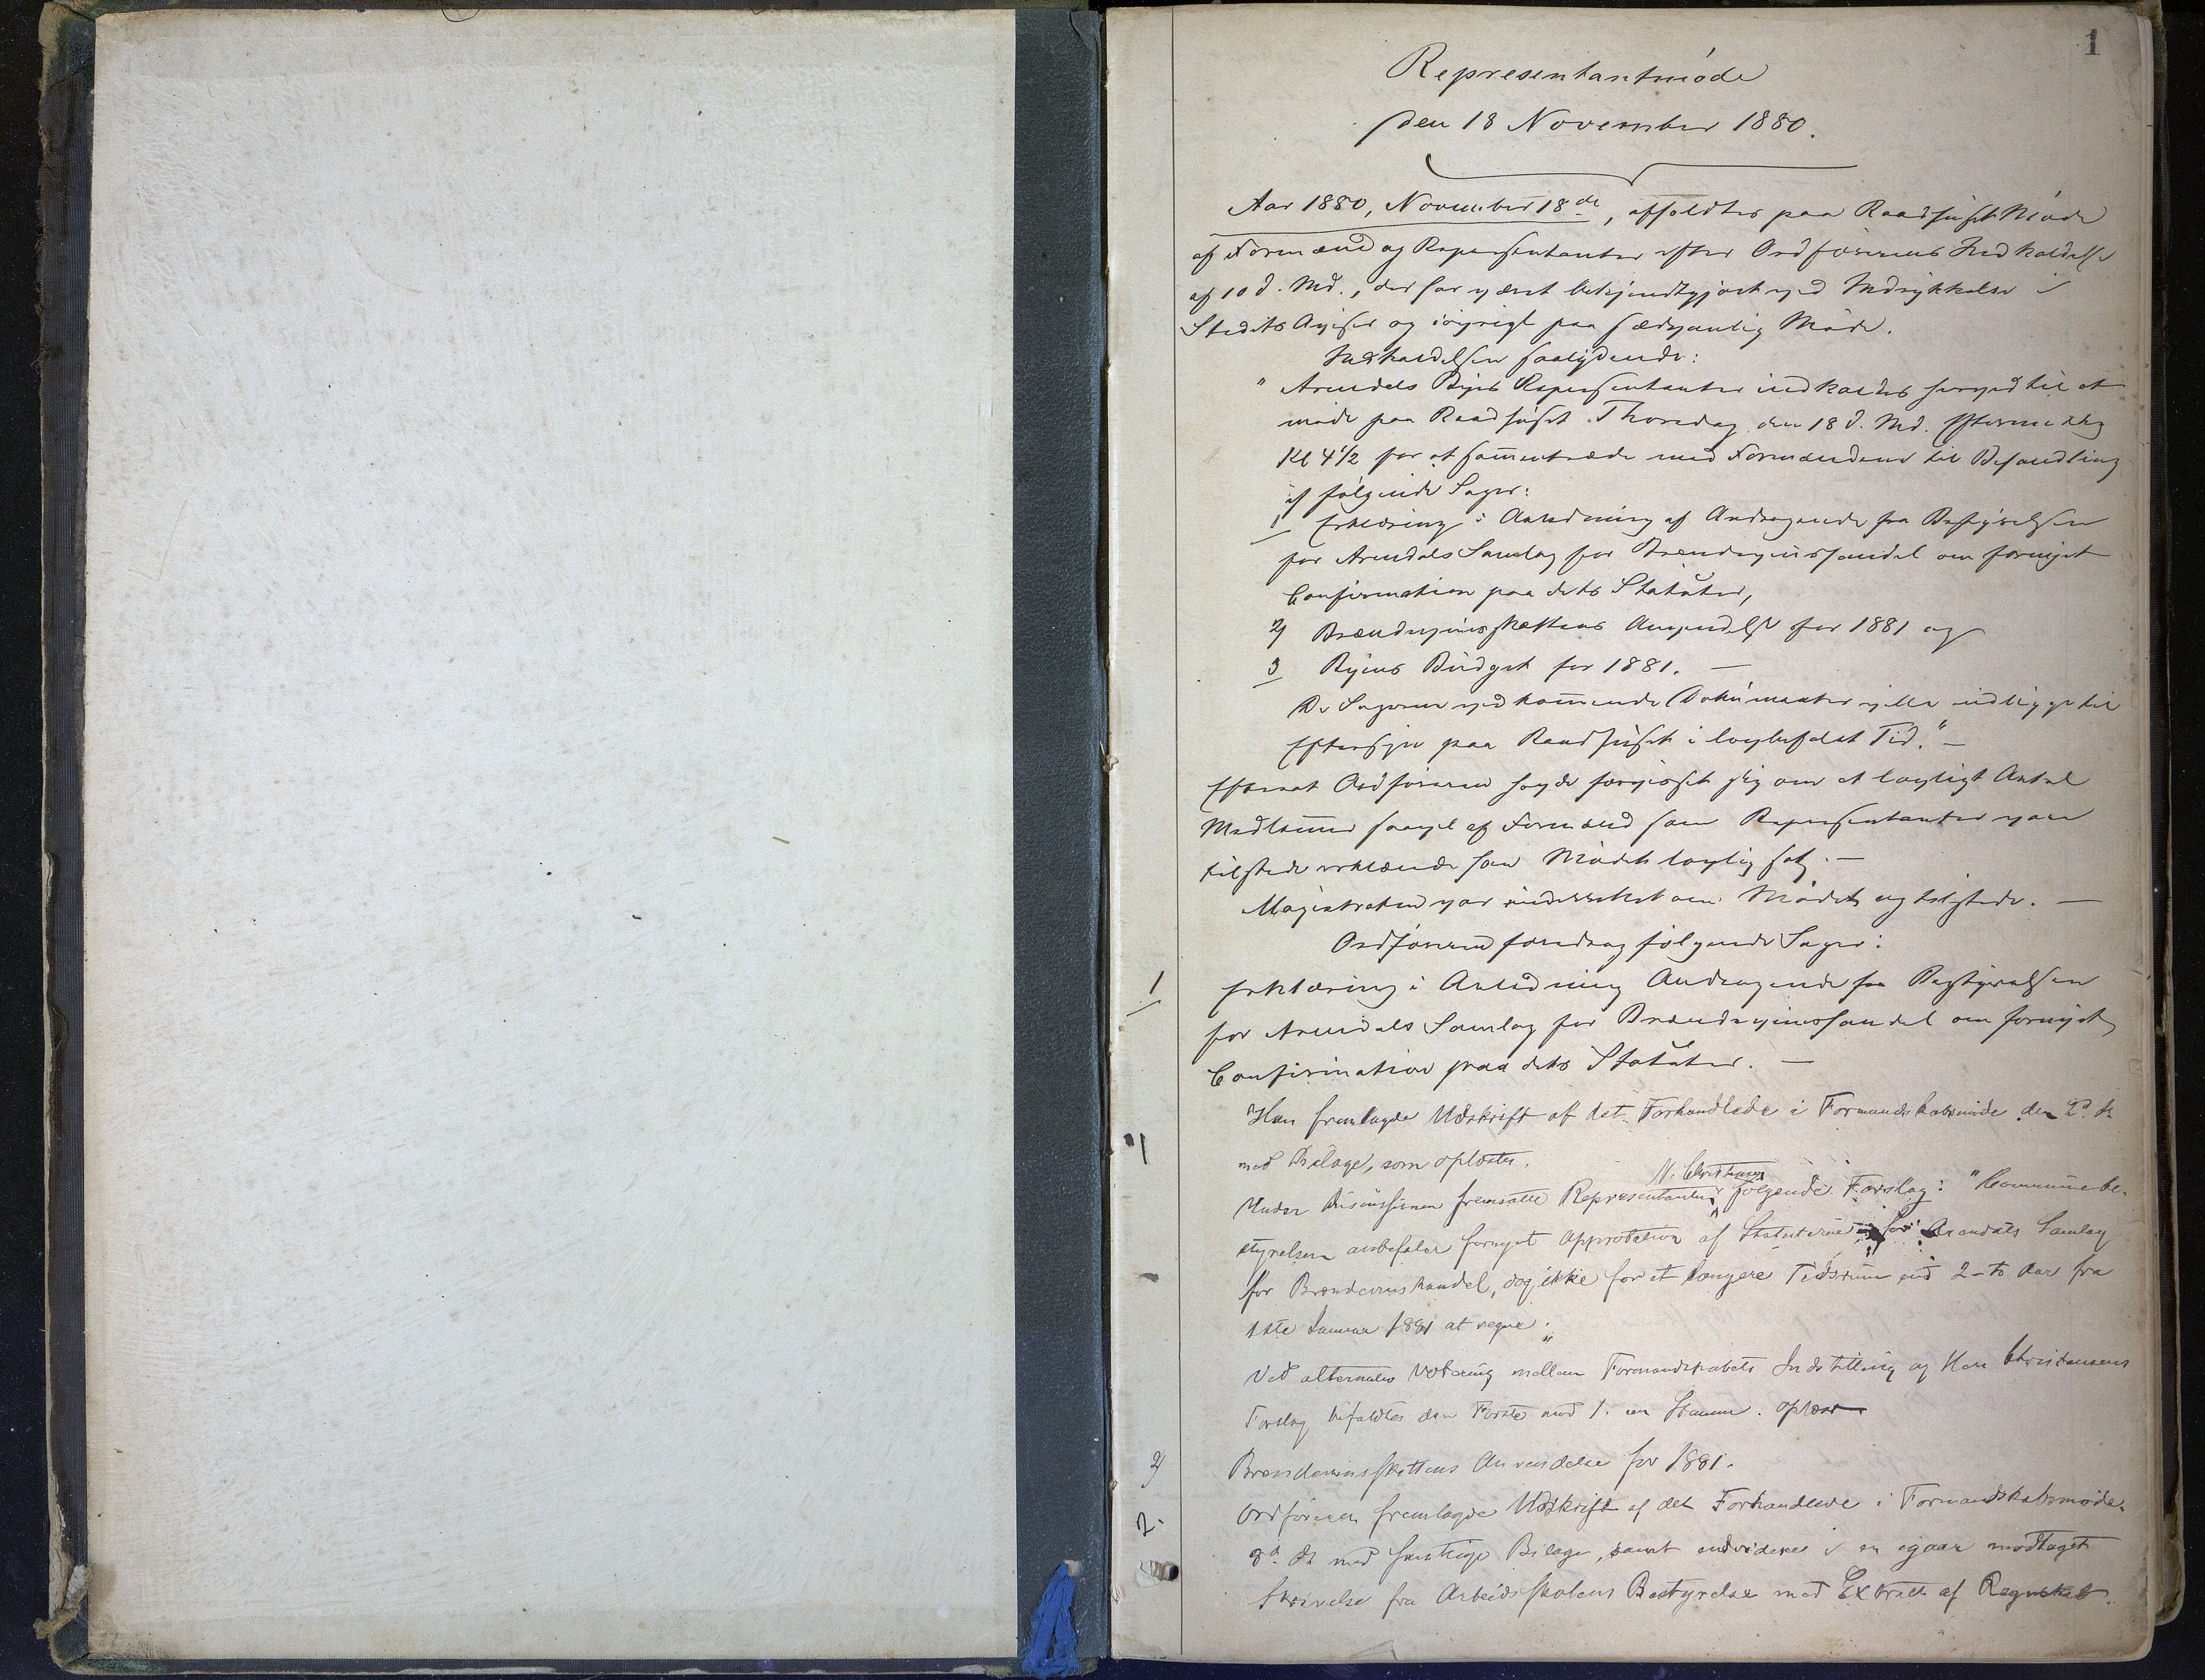 1
Representantmöde
den 18 November 1880.
Aar 1880, November 18de, afholdtes paa Raadhuset Möde
af Formænd og Repræsentanter efter Ordförerens Indkaldelse
af 10 d. Md., der har været bekjendtgjort ved Indrykkelse i
Stedets Aviser og iövrigt paa sædvanlig Maade.
Indkaldelsen saalydende:
"Arendals Byes Repræsentanter indkaldes herved til at
möde paa Raadhuset Thorsdag den 18 d. Md. Eftermiddag
Kl 4½ for at sammentræde med Formændene til Behandling
af fölgende Sager:
1 Erklæring i Anledning af Andragende fra Bestyrelsen
for Arendals Samlag for Brændevinshandel om fornyet
Confirmation paa dets Statuter,
2) Brændevinsskattens Anvendelse for 1881 og
3 Byens Budget for 1881. —
De Sagerne vedkommende Dokumenter ville udlægges til
Eftersyn paa Raadhuset i lovbefalet Tid." —
Efterat Ordföreren havde forvisset sig om at lovligt Antal
Medlemmer saavel af Formænd som Repræsentanter vare
tilstede erklærede han Mödet lovlig sat. —
Magistraten var underrettet om Mödet og tilstede. —
Ordföreren foredrog fölgende Sager:
1 Erklæring i Anledning Andragende fra Bestyrelsen
for Arendals Samlag for Brændevinshandel om fornyet
Confirmation paa dets Statuter. —
Han fremlagde Udskrift af det Forhandlede i Formandskabsmöde den 2d ds
1 med Bilage, som oplæstes.
N. Christensen
Under Discussionen fremsatte Representanten fölgende Forslag: "Communebe-
styrelsen anbefaler fornyet Approbation af Statuterne for Arendals Samlag
for Brændevinshandel, dog ikke for et længere Tidsrum end 2-to Aar fra
1ste Januar 1881 at regne."
Ved alternativ Votering mellem Formandskabets Indstilling og Herr Christensens
Forslag bifaldtes den Förste mod 1. en Stemme.
2) Brændevinsskattens Anvendelse for 1881.
Ordföreren fremlagde Udskrift af det Forhandlede i Formandskabsmöde
2. ds med samtlige Bilage, samt endvidere en igaar modtaget
Skrivelse fra Arbeidsskolens Bestyrelse med Extract af Regnskab.